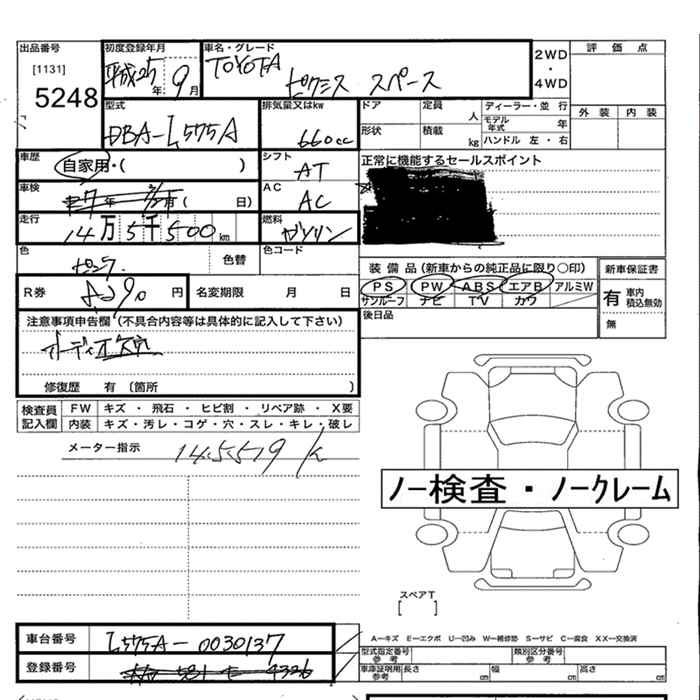 出品番号
[1131]
5248
初度登録年月
平成25年9月
車名・グレード
TOYOTA
ピクシス スペース
2WD
・
4WD
評価点
外装 内装
型式
DBA-L575A
排気量又はkw
660cc
ドア 定員 人
形状 積載 kg
ディーラー・並行
モデル年式 年
ハンドル 左・右
車歴
自家用・( )
シフト
AT
正常に機能するセールスポイント
車検
年 ( 日)
AC
AC
走行
14万5千500km
燃料
ガソリン
色
色替
色コード
装備品(新車からの純正品に限り○印)
PS PW ABS エアB アルミW
サンルーフ ナビ TV カワ
新車保証書
有 車内積込無効
無
R券
円
名変期限 月 日
後日品
注意事項申告欄(不具合内容等は具体的に記入して下さい)
オーディオ欠品
修復歴 有(箇所 )
検査員記入欄
FW キズ・飛石・ヒビ割・リペア跡・X要
内装 キズ・汚レ・コゲ・穴・スレ・キレ・破レ
メーター指示
145579 k
ノー検査・ノークレーム
スペアT
[ ]
車台番号
L575A-0030137
登録番号
581 4326
A－キズ E－エクボ U－凹み W－補修跡 S－サビ C－腐食 XX－交換済
型式指定番号 参考
類別区分番号 参考
車庫証明用 参考
長さ cm 幅 cm 高さ cm